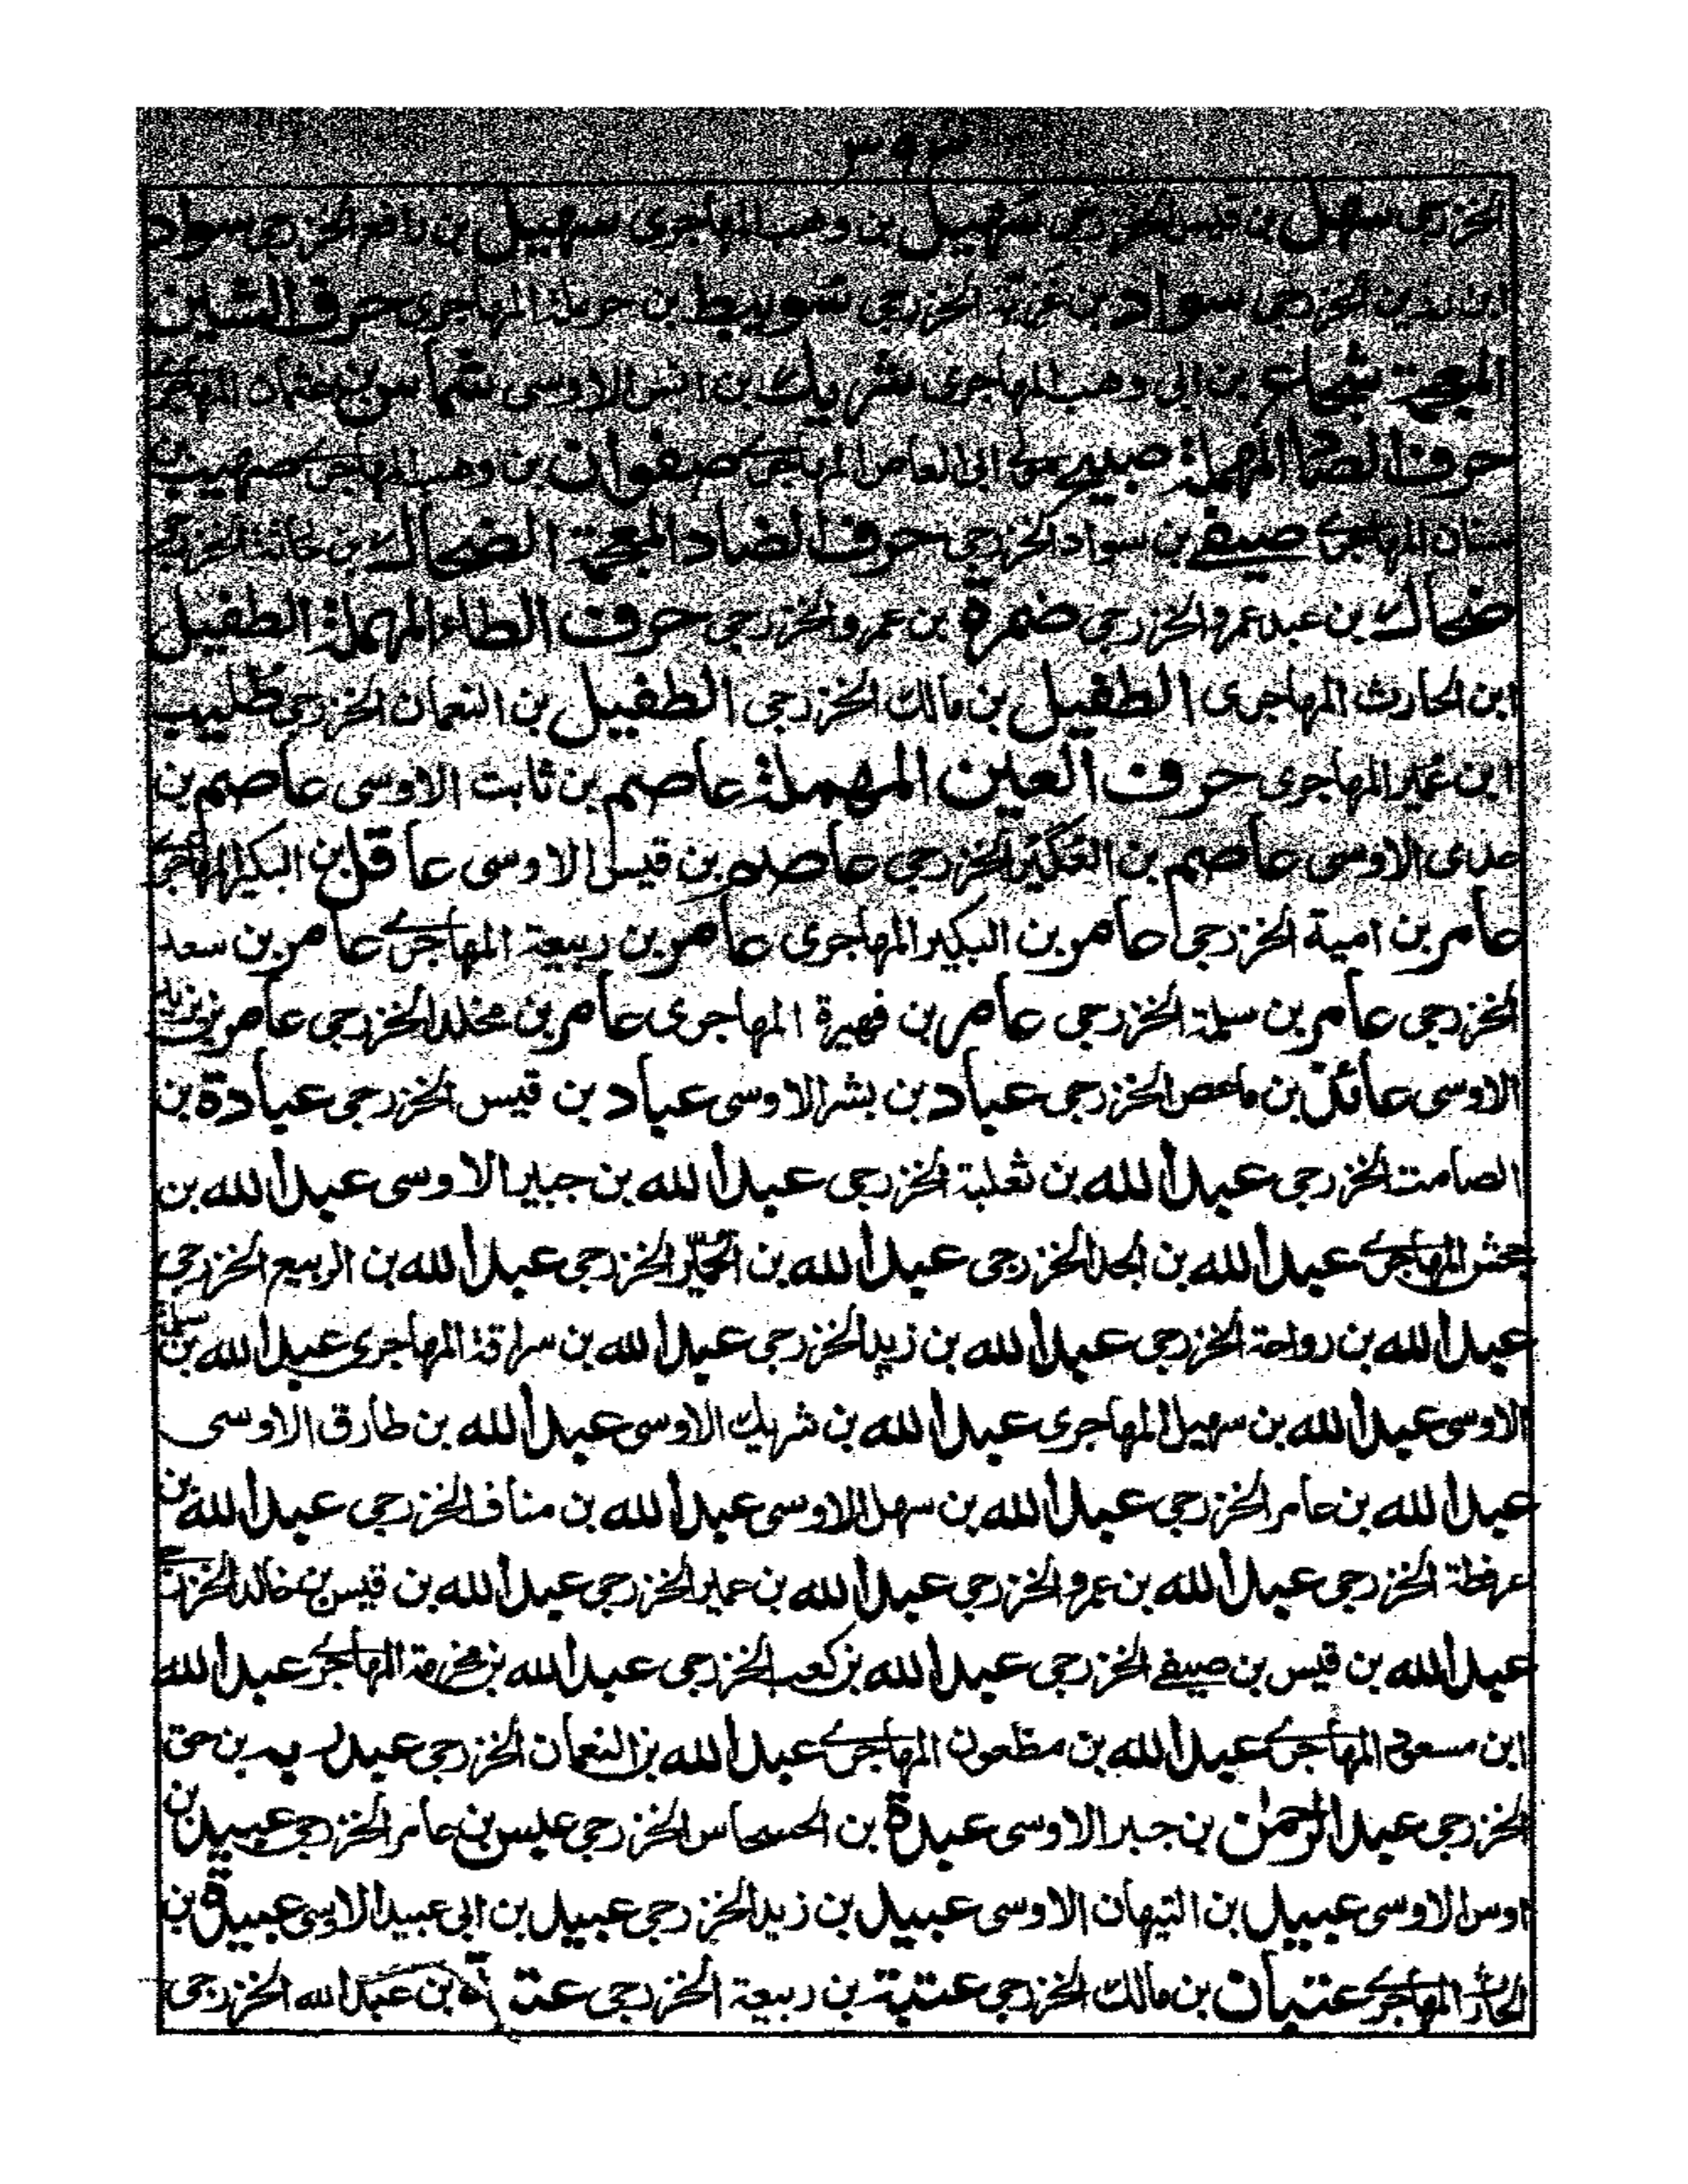 ٣٩٣
الخزرجى سهل بن قيس الخزرجى سهيل بن وهب المهاجرى سهيل بن رافع الخزرجى سواد
ابن رزين الخزرجى سواد بن غزية الخزرجى سويبط بن حرملة المهاجرى حرف الشين
المعجمة شجاع بن ابى وهب المهاجرى شريك بن انس الاوسى شماس بن عثمان المهاجرى
حرف الصاد المهملة صبيح مولى ابى العاص المهاجرى صفوان بن وهب المهاجرى صهيب بن
سنان المهاجرى صيفى بن سواد الخزرجى حرف الضاد المعجمة الضحاك بن حارثة الخزرجى
ضحاك بن عبد عمرو الخزرجى ضمرة بن عمرو الخزرجى حرف الطاء المهملة الطفيل
ابن الحارث المهاجرى الطفيل بن مالك الخزرجى الطفيل بن النعمان الخزرجى طليب
ابن عمير المهاجرى حرف العين المهملة عاصم بن ثابت الاوسى عاصم بن
عدى الاوسى عاصم بن العكير الخزرجى عاصم بن قيس الاوسى عاقل بن البكير المهاجرى
عامر بن امية الخزرجى عامر بن البكير المهاجرى عامر بن ربيعة المهاجرى عامر بن سعد
الخزرجى عامر بن سلمة الخزرجى عامر بن فهيرة المهاجرى عامر بن مخلد الخزرجى عامر بن يزيد
الاوسى عائذ بن ماعص الخزرجى عباد بن بشر الاوسى عباد بن قيس الخزرجى عبادة بن
الصامت الخزرجى عبد الله بن ثعلبة الخزرجى عبد الله بن جبير الاوسى عبد الله بن
جحش المهاجرى عبد الله بن الجد الخزرجى عبد الله بن الحميّر الخزرجى عبد الله بن الربيع الخزرجى
عبد الله بن رواحة الخزرجى عبد الله بن زيد الخزرجى عبد الله بن سراقة المهاجرى عبد الله بن سلمة
الاوسى عبد الله بن سهيل المهاجرى عبد الله بن شريك الاوسى عبد الله بن طارق الاوسى
عبد الله بن عامر الخزرجى عبد الله بن سهل الاوسى عبد الله بن مناف الخزرجى عبد الله بن
عرفطة الخزرجى عبد الله بن عمرو الخزرجى عبد الله بن عمير الخزرجى عبد الله بن قيس بن خالد الخزرجى
عبد الله بن قيس بن صيفى الخزرجى عبد الله بن كعب الخزرجى عبد الله بن مخرمة المهاجرى عبد الله
ابن مسعود المهاجرى عبد الله بن مظعون المهاجرى عبد الله بن النعمان الخزرجى عبد ربه بن حق
الخزرجى عبد الرحمٰن بن جبر الاوسى عبدة بن الحسحاس الخزرجى عبس بن عامر الخزرجى عبيد بن
اوس الاوسى عبيد بن التيهان الاوسى عبيد بن زيد الخزرجى عبيد بن ابى عبيد الاوسى عبيدة بن
الحارث المهاجرى عتبان بن مالك الخزرجى عتبة بن ربيعة الخزرجى عتبة بن عبد الله الخزرجى